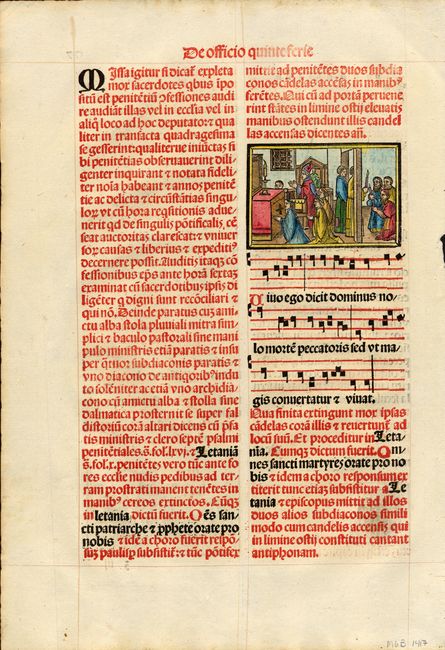 De officio quinte ferie
Missa igitur si dicat̃ expleta
mox sacerdotes qbus ipo
situ͂ est penite͂tiu͂ ↄfessiones audi
re audiãt illas vel in eccl̃ia vel in
aliq̃ loco ad hoc deputato: qua
liter in transacta quadragesima
se gesserint: qualiterue iniu͂ctas si
bi penite͂tias obseruauerint dili
genter inquirant ⁊ notata fideli
ter noĩa habeant ⁊ annos penite͂
tie ac delicta ⁊ circu͂stãtias singu
loꝝ vt cu͂ hora reqsitionis adue
nerit qd de singulis po͂tificalis ce͂
seat auctoritas clarescat: ⁊ vniuer
soꝝ causas ⁊ liberius ⁊ expeditiꝰ
decernere possit. Auditis itaqꝫ co͂
fessionibus ep̃s ante horã sextaꝫ
examinat cu͂ sacerdotibus ip̃sis di
lige͂ter q digni sunt reco͂ciliari ⁊
qui nõ. Deinde paratus cuꝫ ami
ctu alba stola pluuiali mitra sim
plici ⁊ baculo pastorali sine mani
pulo ministris etiã paratis ⁊ insu
per qtuor subdiaconis paratis ⁊
vno diacono de antiqoribꝰ indu
to sole͂niter ac etiã vno archidia
cono cu͂ amictu alba ⁊ stolla sine
dalmatica prosternit se super fal
distoriu͂ corã altari dicens cu͂ p̃fa
tis ministris ⁊ clero septe͂ psalmi
penite͂tiales. s̃. fol. lxvj. ⁊ Letaniã
s̃. fol. x. penite͂tes vero tu͂c ante fo
res ecclie nudis pedibus ad ter
ram prostrati manent tene͂tes in
manibꝰ cereos extinctos. Cu͂qꝫ
in letania dictu͂ fuerit. Oe͂s san
cti patriarche ⁊ ꝓphete orate pro
nobis ⁊ ide͂ a choro fuerit respõ
suꝫ paulisꝑ subsistit̃: ⁊ tu͂c põtifex
mittit ad penite͂tes duos subdia
conos cãdelas acce͂sas in manibꝰ
fere͂tes. Qui cu͂ ad portã peruene
rint stãtes in limine ostij eleuatis
manibus ostendunt illis candel
las accensas dicentes añ.
Uiuo ego dicit dominus no
lo morte͂ peccatoris sed vt ma
gis conuertatur ⁊ viuat.
Qua finita extingunt̃ mox ip̃sas
cãdelas corã illis ⁊ reuertunt̃ ad
locu͂ suu͂. Et proceditur in Leta
nia. Cumqꝫ dictum fuerit. Om
nes sancti martyres orate pro no
bis ⁊ idem a choro responsum ex
titerit tunc etiaꝫ subsistitur a Le
tania ⁊ episcopus mittit ad illos
duos alios subdiaconos simili
modo cum candelis accensis qui
in limine ostij constituti cantant
antiphonam.
MGB 1417